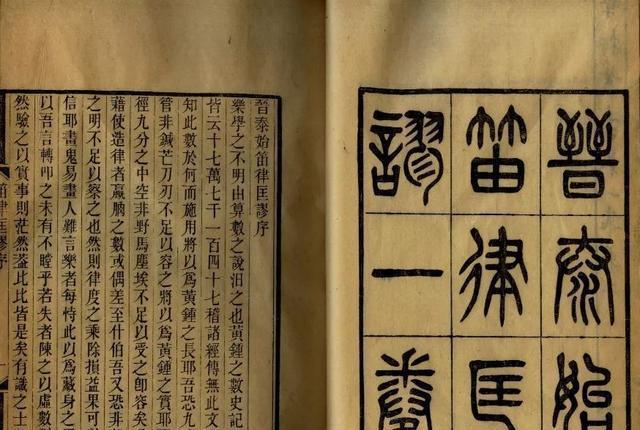 晉泰始
笛律匡
謬一卷
晉泰始笛律匡謬序
樂學之不明由算數之說汨之也黃鍾之數史記
皆云十七萬七千一百四十七稽諸經傳無此文
知此數於何而施用將以爲黃鍾之長耶吾恐九
管非鍼芒刀刃不足以容之將以爲黃鍾之實耶
徑九分之中空非野馬塵埃不足以受之卽容矣
藉使造律者贏朒之數或偶差至什伯吾又恐非
之明不足以察之也然則律度之乘除損益果可
信耶畫鬼易畫人難言樂者每恃此以爲藏身之
以吾言轉叩之未有不瞠乎若失者陳之以虛數
然驗之以實事則茫然蓋比比皆是矣有識之士
笛律匡謬序